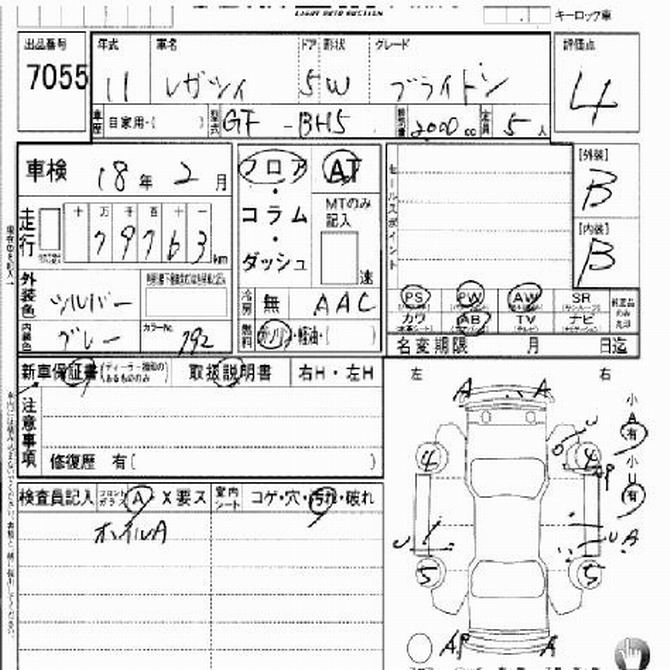 LIGHT AUTO AUCTION
キーロック車
出品番号 年式 車名 ドア 形状 グレード 評価点
7055 11 レガツィ 5W ブライトン 4
車歴 自家用・( ) 型式 GF -BH5 排気量 2000 cc 定員 5 人
車検 18年 2月 フロア AT セールスポイント [外装] B
走行 十 万 千 百 十 一 ・ MTのみ記入
79763 km コラム [内装] B
・
ダッシュ 速
外装色 シルバー 冷房 無 AAC PS PW AW SR
燃料 ガソリン・軽油・( ) カワ AB TV ナビ
内装色 グレー カラーNo. 792 名変期限 月 日迄
新車保証書(ディーラー捺印のあるもののみ) 取扱説明書 右H・左H 左 右
注意事項
修復歴 有( )
検査員記入 フロントガラス A・X要ス 室内シート コゲ・穴・汚れ・破れ
ホイルA
A A
小A有
小U有
U
4 4
AP
U A
U
5 5
AP A